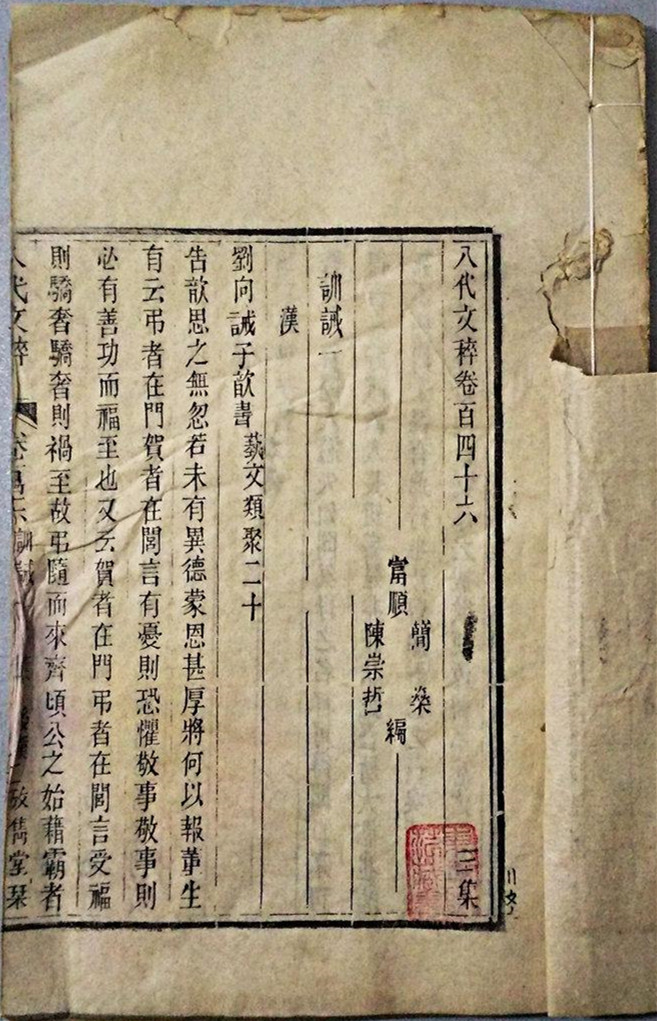 八代文稡卷百四十六
三集
富順
簡燊
陳崇哲
編
訓誡一
漢
劉向誡子歆書
蓺文類聚二十
告歆思之無忽若未有異德蒙恩甚厚將何以報董生
有云弔者在門賀者在閭言有憂則恐懼敬事敬事則
必有善功而福至也又云賀者在門弔者在閭言受福
則驕奢驕奢則禍至故弔隨而來齊頃公之始藉霸者
八代文稡
訓誡
堂栞